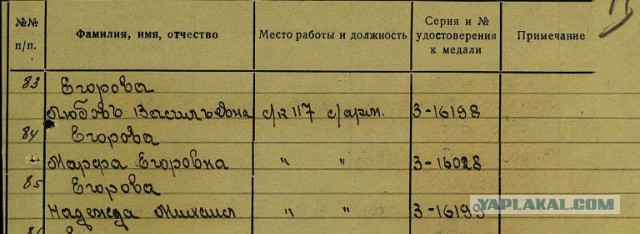 №№ п/п. Фамилия, имя, отчество Место работы и должность Серия и № удостоверения к медали Примечание
83 Егорова
Любовь Васильевна с/к 117 с/арм. З-16198
84 Егорова
Марфа Егоровна " " З-16028
85 Егорова
Надежда Михаил " " З-16199
YAPLAKAL.COM